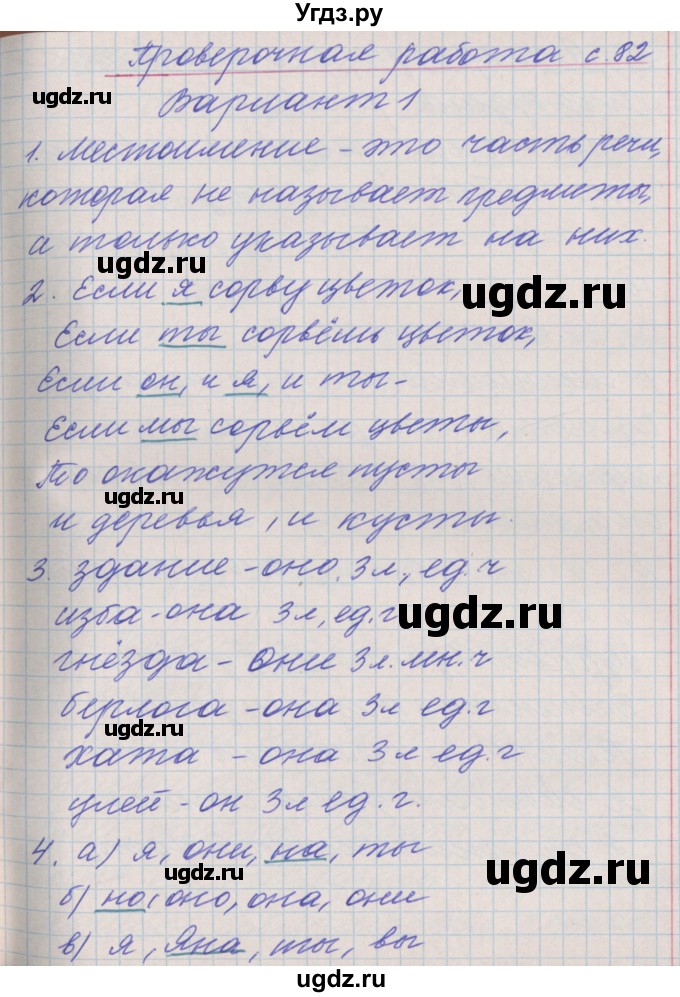 Угдз.ру
Проверочная работа с.82
ugdz.ru
Вариант 1
1. Местоимение – это часть речи,
которая не называет предметы,
а только указывает на них.
ugdz.ru
2. Если я сорву цветок,
ugdz.ru
Если ты сорвёшь цветок,
Если он, и я, и ты-
Если мы сорвём цветы,
То окажутся пусты
ugdz.ru
и деревья, и кусты.
3. здание – оно. 3 л., ед.ч
изба – она 3 л, ед.ч
ugdz.ru
гнёзда – они 3 л. мн.ч
берлога – она 3 л ед.ч
ugdz.ru
хата – она 3 л ед.ч
улей – он 3 л ед.ч.
ugdz.ru
4. а) я, они, на, ты
ugdz.ru
б) но, оно, она, они
в) я, Яна, ты, вы
ugdz.ru
ugdz.ru